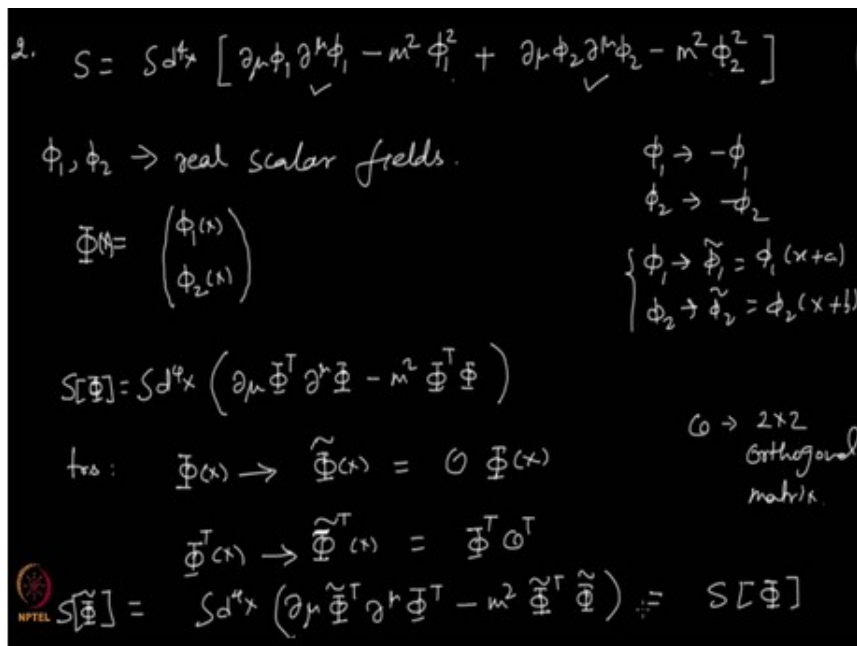 2. S = ∫d⁴x [ ∂μϕ₁∂^μϕ₁ − m²ϕ₁² + ∂μϕ₂∂^μϕ₂ − m²ϕ₂² ]
✓ ✓
ϕ₁, ϕ₂ → real scalar fields.
ϕ₁ → −ϕ₁
ϕ₂ → −ϕ₂
Φ(x) = ( ϕ₁(x)
ϕ₂(x) )
{ ϕ₁ → ϕ̃₁ = ϕ₁(x+a)
ϕ₂ → ϕ̃₂ = ϕ₂(x+b)
S[Φ] = ∫d⁴x ( ∂μΦᵀ∂^μΦ − m²ΦᵀΦ )
O → 2×2
orthogonal
matrix.
trs: Φ(x) → Φ̃(x) = O Φ(x)
Φᵀ(x) → Φ̃ᵀ(x) = ΦᵀOᵀ
S[Φ̃] = ∫d⁴x ( ∂μΦ̃ᵀ∂^μΦ̃ᵀ − m²Φ̃ᵀΦ̃ ) = S[Φ]
NPTEL